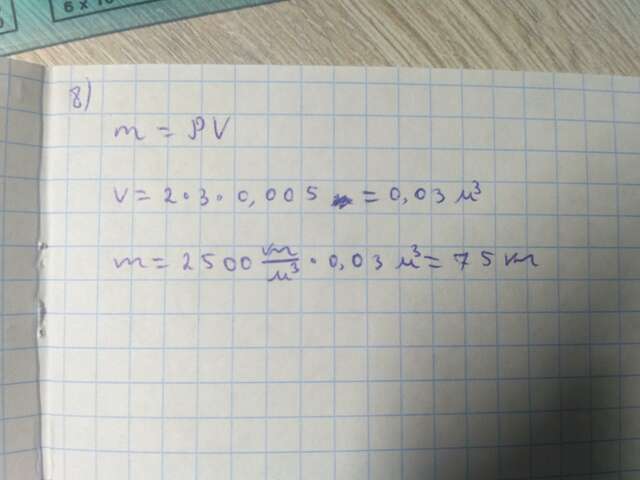 6 x 10
8)
m = ρV
V = 2 · 3 · 0,005 = 0,03 м³
m = 2500 кг/м³ · 0,03 м³ = 75 кг